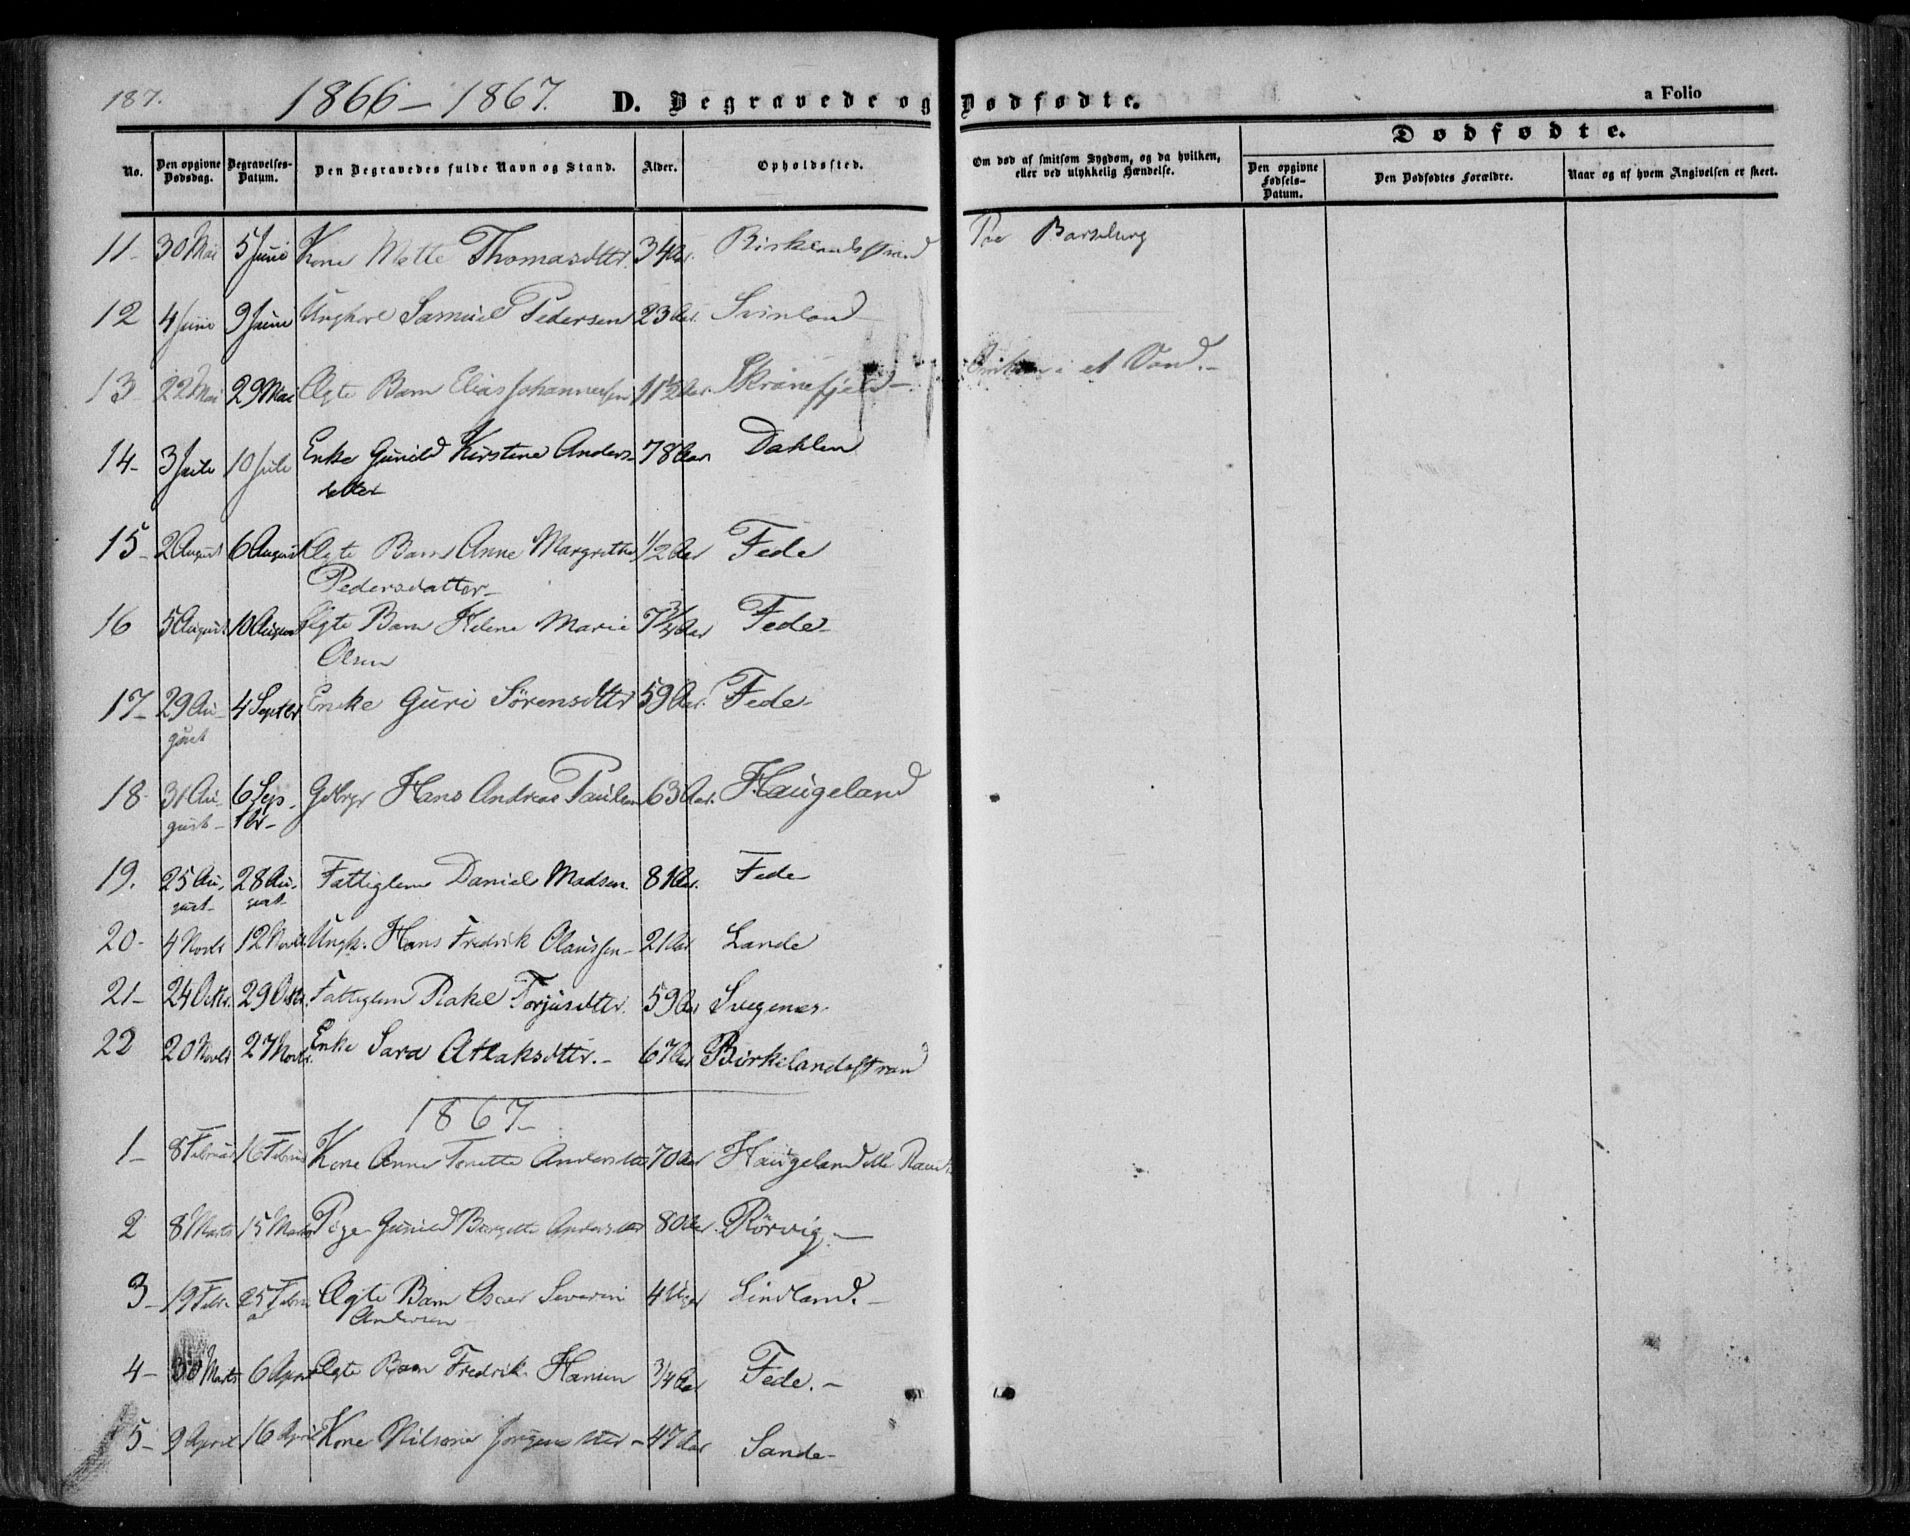 187.
1866 – 1867. D. Begravede og Dødfødte. a Folio
Dødfødte.
No. Den opgivne Dødsdag. Begravelses-Datum. Den Begravedes fulde Navn og Stand. Alder. Opholdssted. Om død af smitsom Sygdom, og da hvilken, eller ved ulykkelig Hændelse. Den opgivne Fødsels-Datum. Den Dødfødtes Forældre. Naar og af hvem Angivelsen er skeet.
11- 30 Mai 5 Juni Kone Mette Thomasdttr. 34 Aar. Birkelandsstrand Paa Barselseng
12 4 Juni 9 Juni Ungkarl Samuel Pedersen 23 Aar. Svinland
13 22 Mai 29 Mai Ægte Barn Elias Johannessen 11½ Aar. Skranefjeld – i et Vand. –
14- 3 Juli 10 Juli Enke Gunild Kirstine Anders- 78 Aar Dahlen
datter
15- 2 August 6 August Ægte Barn Anne Margrethe 1/2 Aar Fede
Pedersdatter –
16 5 August 10 August Ægte Barn Helene Marie 7¾ Aar Fede –
Olsen
17- 29 Au- 4 Septbr Enke Guri Sørensdttr 59 Aar. Fede –
gust
18- 31 Au- 6 Sep- Gdbrgr Hans Andreas Paulsen 63 Aar. Haugeland
gust – tbr –
19. 25 Au- 28 Au- Fattiglem Daniel Madsen. 81 Aar. Fede
gust – gust –
20- 4 Novbr 12 Novbr Ungk. Hans Fredrik Claussen – 21 Aar Lande
21- 24 Octbr. 29 Octbr. Fattiglem Rakel Torjusdttr. 59 Aar Svegenes
22 20 Novbr 27 Novbr. Enke Sara Atlaksdttr. – 67 Aar Birkelandsstran
1867 –
1- 8 Februar 16 Februar Kone Anne Tonette Andersdttr 70 Aar Haugeland
2 8 Marts 15 Marts Pige Gunild Bergitte Andersdttr 80 Aar. Rørvig. –
3- 19 Febr. 25 Febru Ægte Barn Oscar Severin 4 Uger Lindland. –
ar Andersen
4- 30 Marts 6 April Ægte Barn Fredrik Hansen 3/4 Aar Fede. –
5- 9 April 16 April Kone Nilsine Jørgensdttr – 47 Aar Sande –